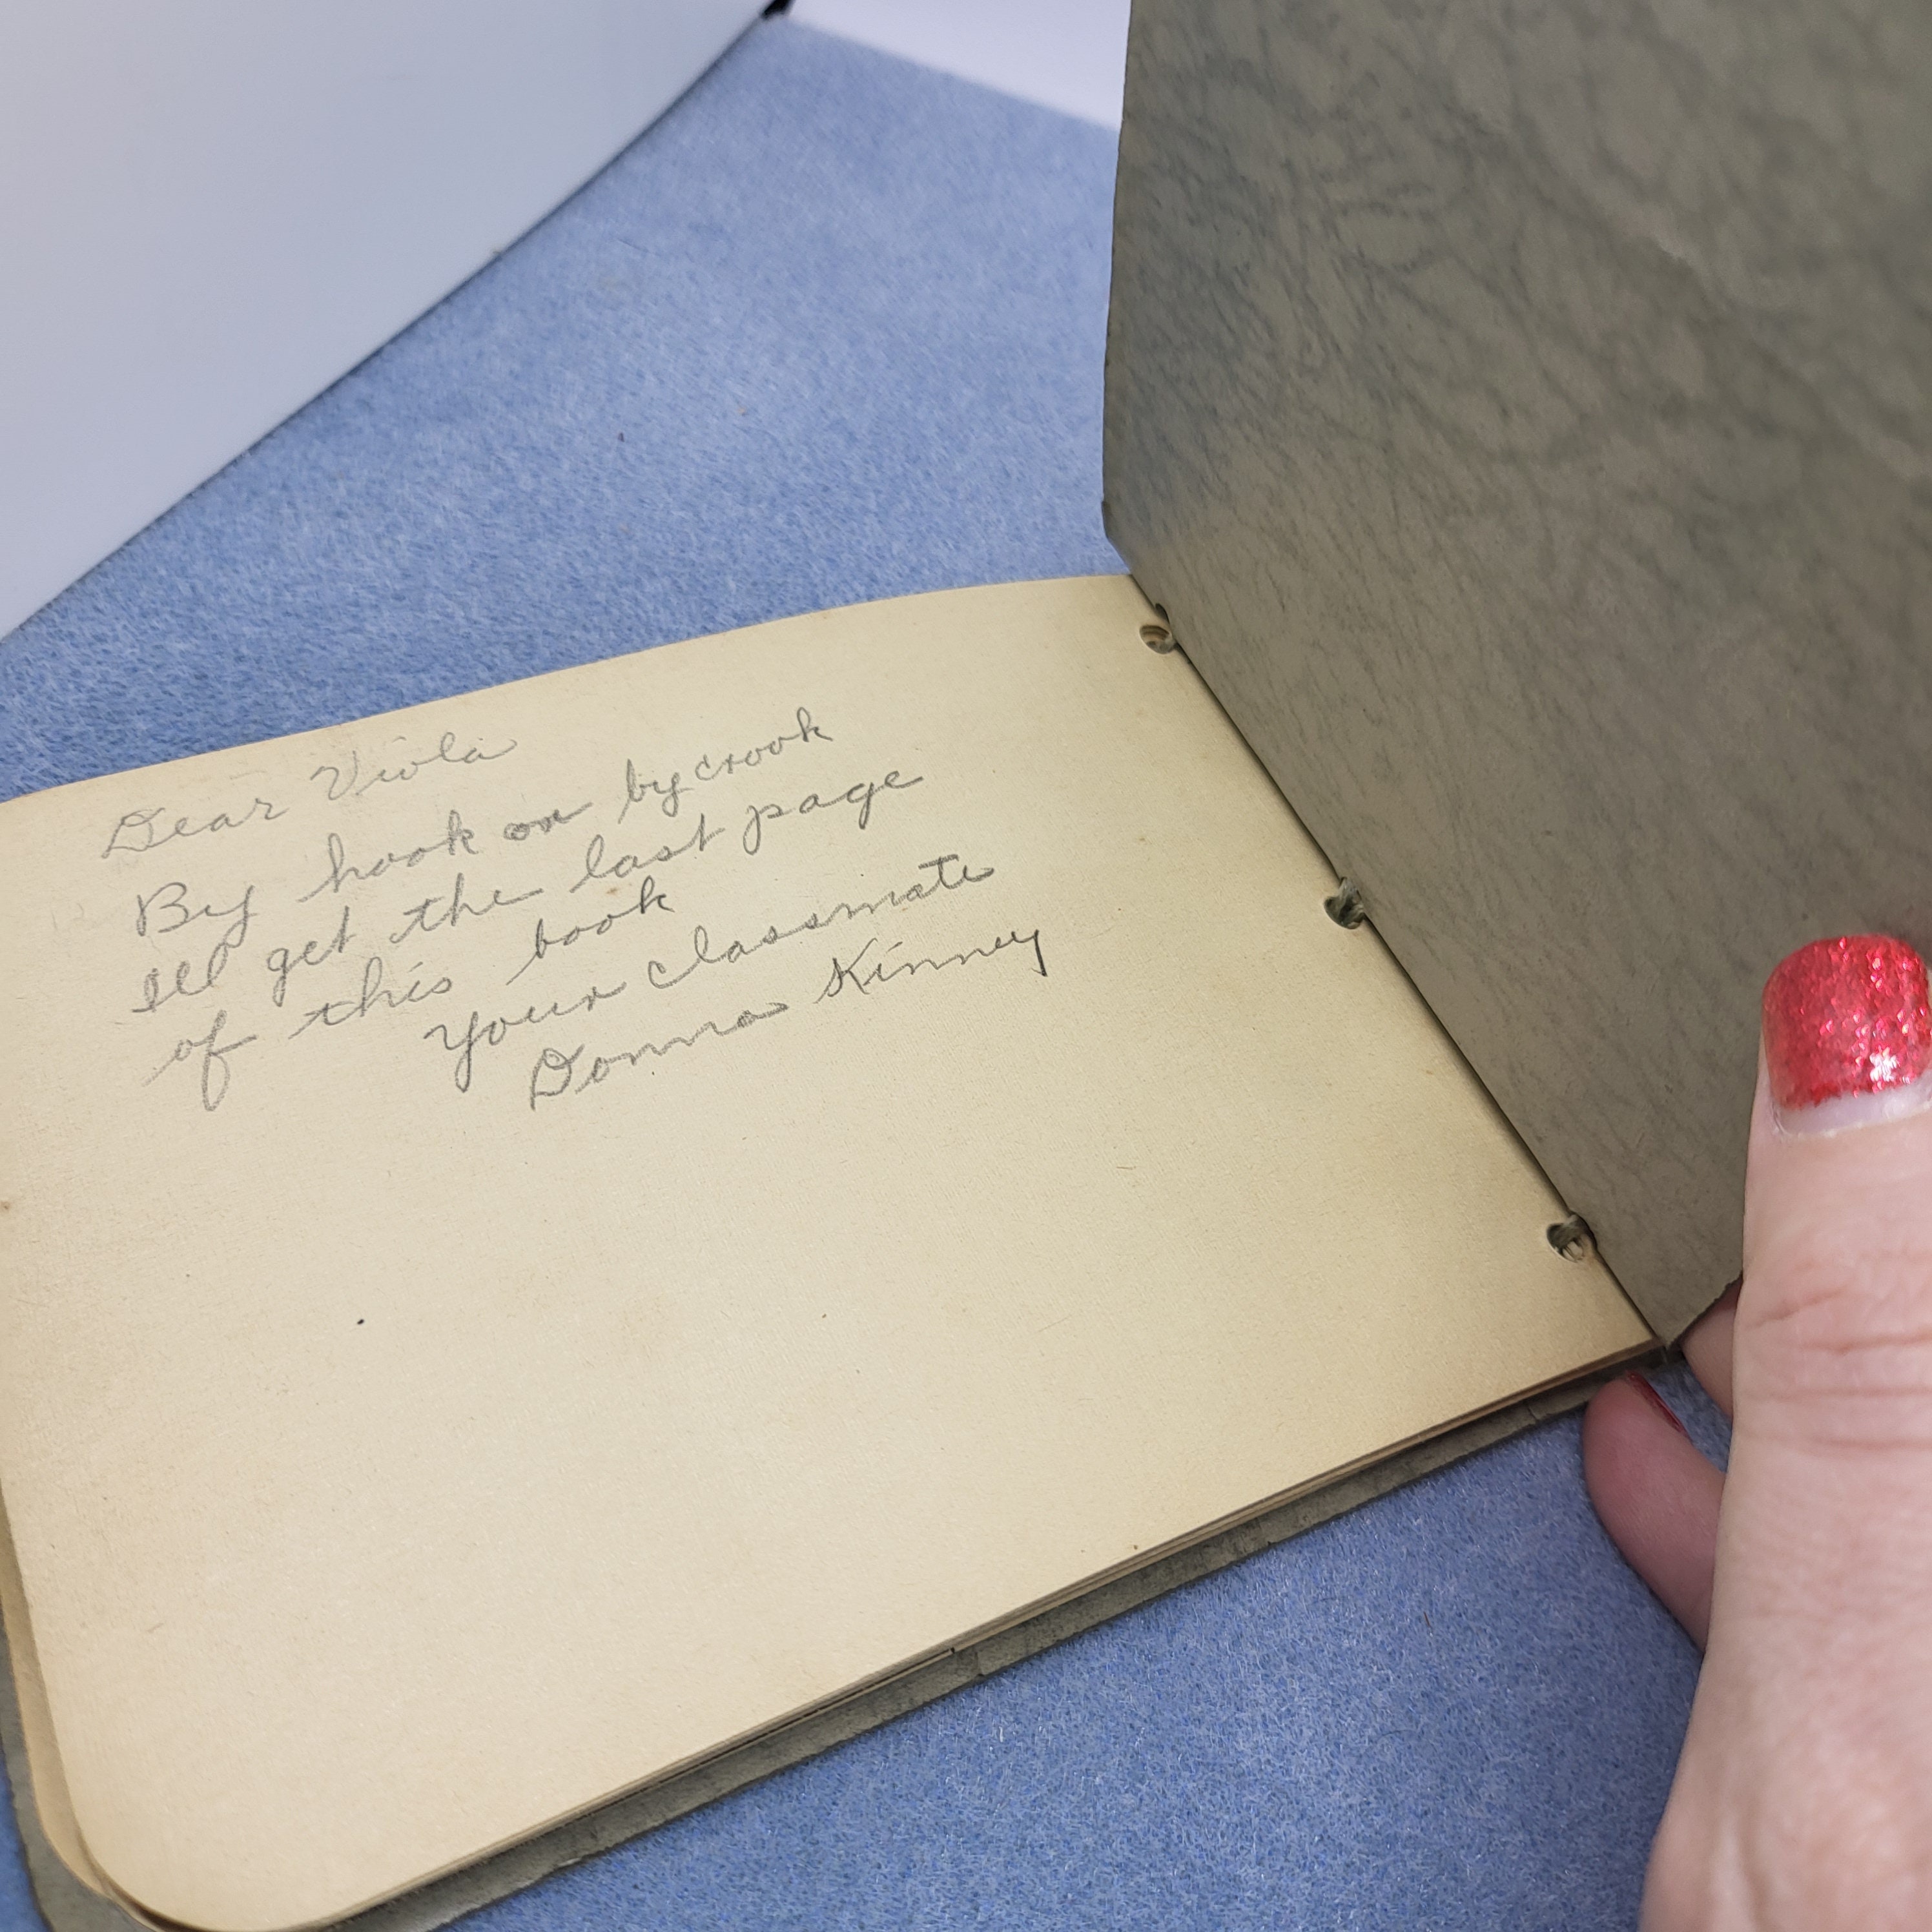 Dear Viola
By hook or by crook
Ill get the last page
of this book
Your classmate
Donna Kinney